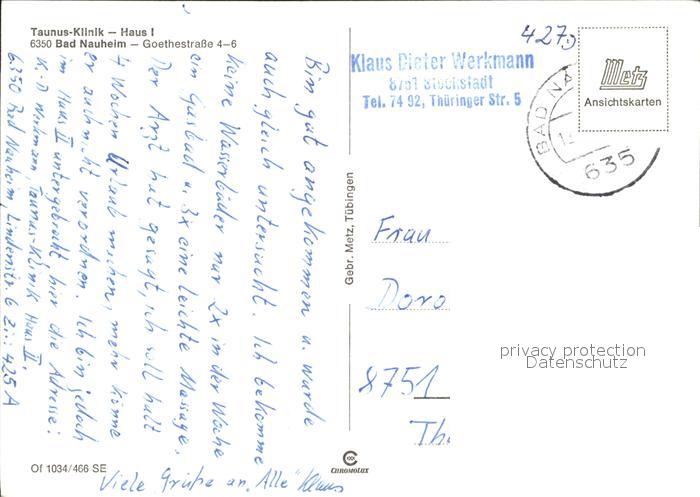 Taunus-Klinik – Haus I
6350 Bad Nauheim – Goethestraße 4–6
Bin gut angekommen u. wurde
auch gleich untersucht. Ich bekomme
keine Wasserbäder nur 2x in der Woche
ein Gasbad u. 3x eine leichte Massage,
Der Arzt hat gesagt, ich soll halt
4 Wochen Urlaub machen, mehr könne
er auch nicht verordnen. Ich bin jedoch
im Haus II untergebracht hier die Adresse:
K.-D Werkmann, Taunus-Klinik Haus II,
6350 Bad Nauheim Lindenstr. 6 Zi.: 425 A
Viele Grüße an "Alle" Klaus
Of 1034/466 SE
Gebr. Metz, Tübingen
CHROMOLUX
Klaus Dieter Werkmann
8751 Stockstadt
Tel. 74 92, Thüringer Str. 5
427
Metz
Ansichtskarten
BAD NA
635
Frau
Doro
8751
Th
privacy protection
Datenschutz